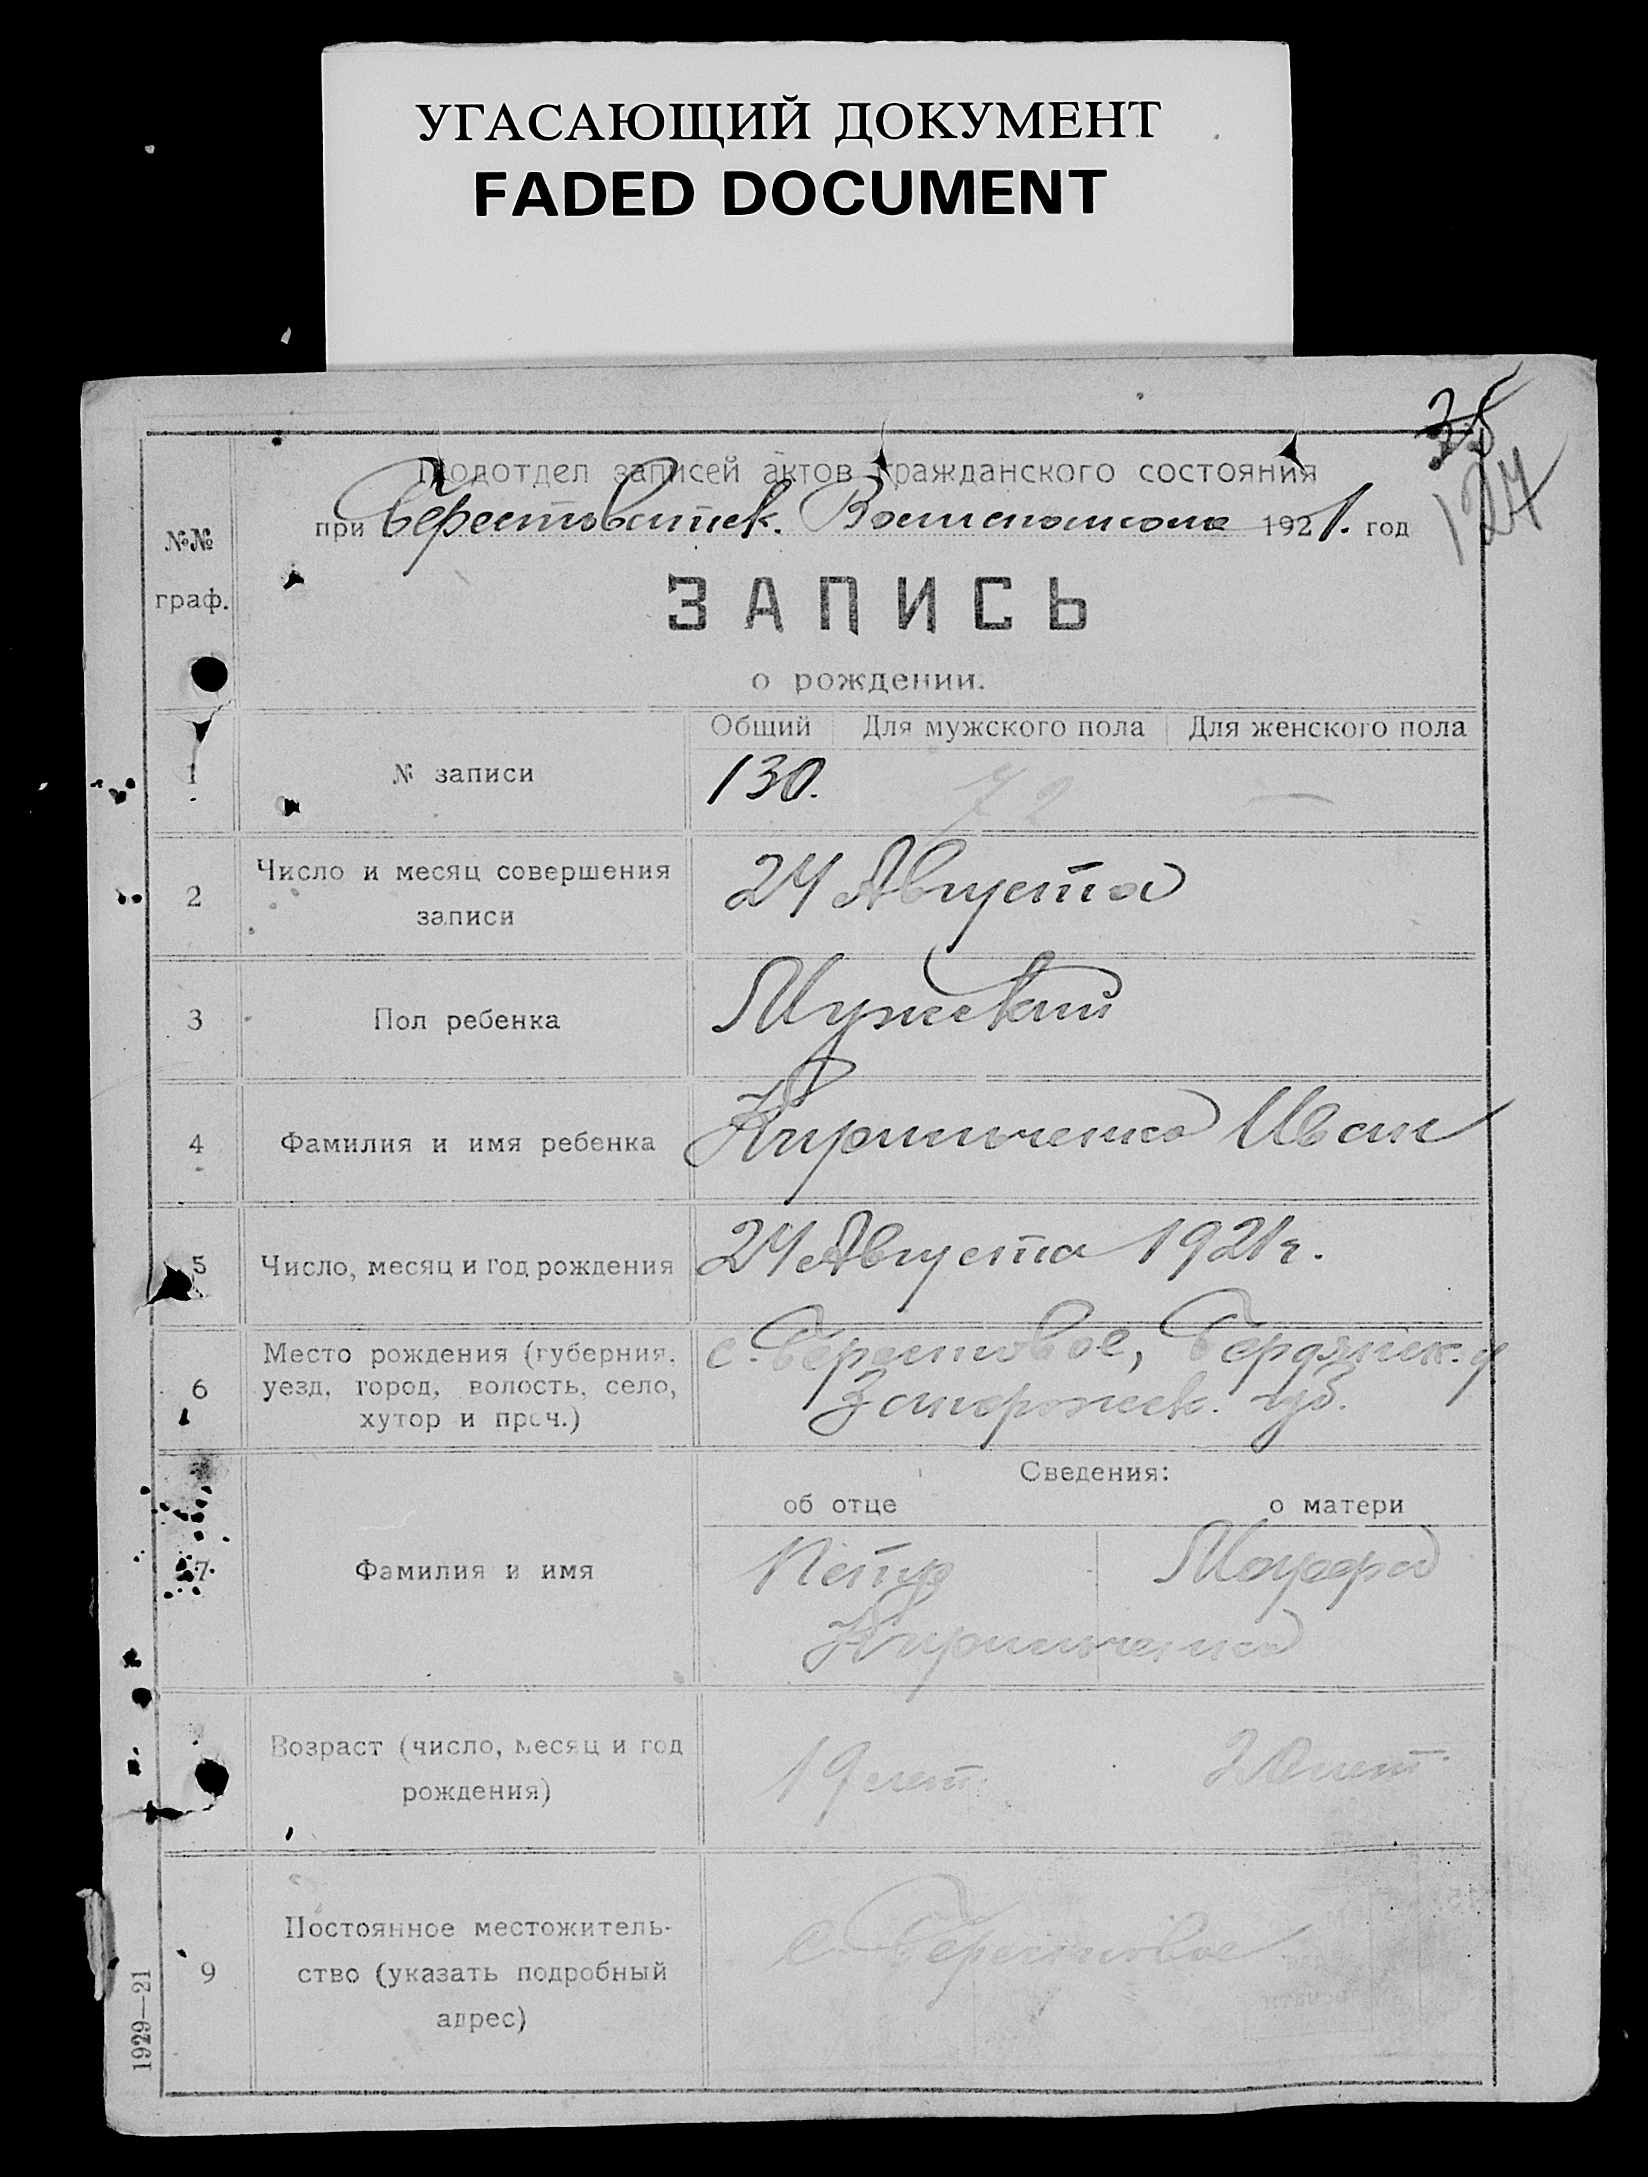 УГАСАЮЩИЙ ДОКУМЕНТ
FADED DOCUMENT
38
127
Подотдел записей актов гражданского состояния
при Берестоватск. Волисполкоме 1921. год
№№
граф.
ЗАПИСЬ
о рождении.
Общий Для мужского пола Для женского пола
1 № записи 130. 72 —
2 Число и месяц совершения
записи
24 Августа
3 Пол ребенка Мужской
4 Фамилия и имя ребенка Кирильченко Иван
5 Число, месяц и год рождения 24 Августа 1921 г.
6 Место рождения (губерния,
уезд, город, волость, село,
хутор и проч.)
с. Берестовое, Бердянск. у
Запорожск. губ.
Сведения:
об отце о матери
7 Фамилия и имя
Петр
Кирильченко
Возраст (число, месяц и год
рождения)
19 лет. 20 лет.
9 Постоянное местожитель-
ство (указать подробный
адрес)
с. Берестовое
1929—21